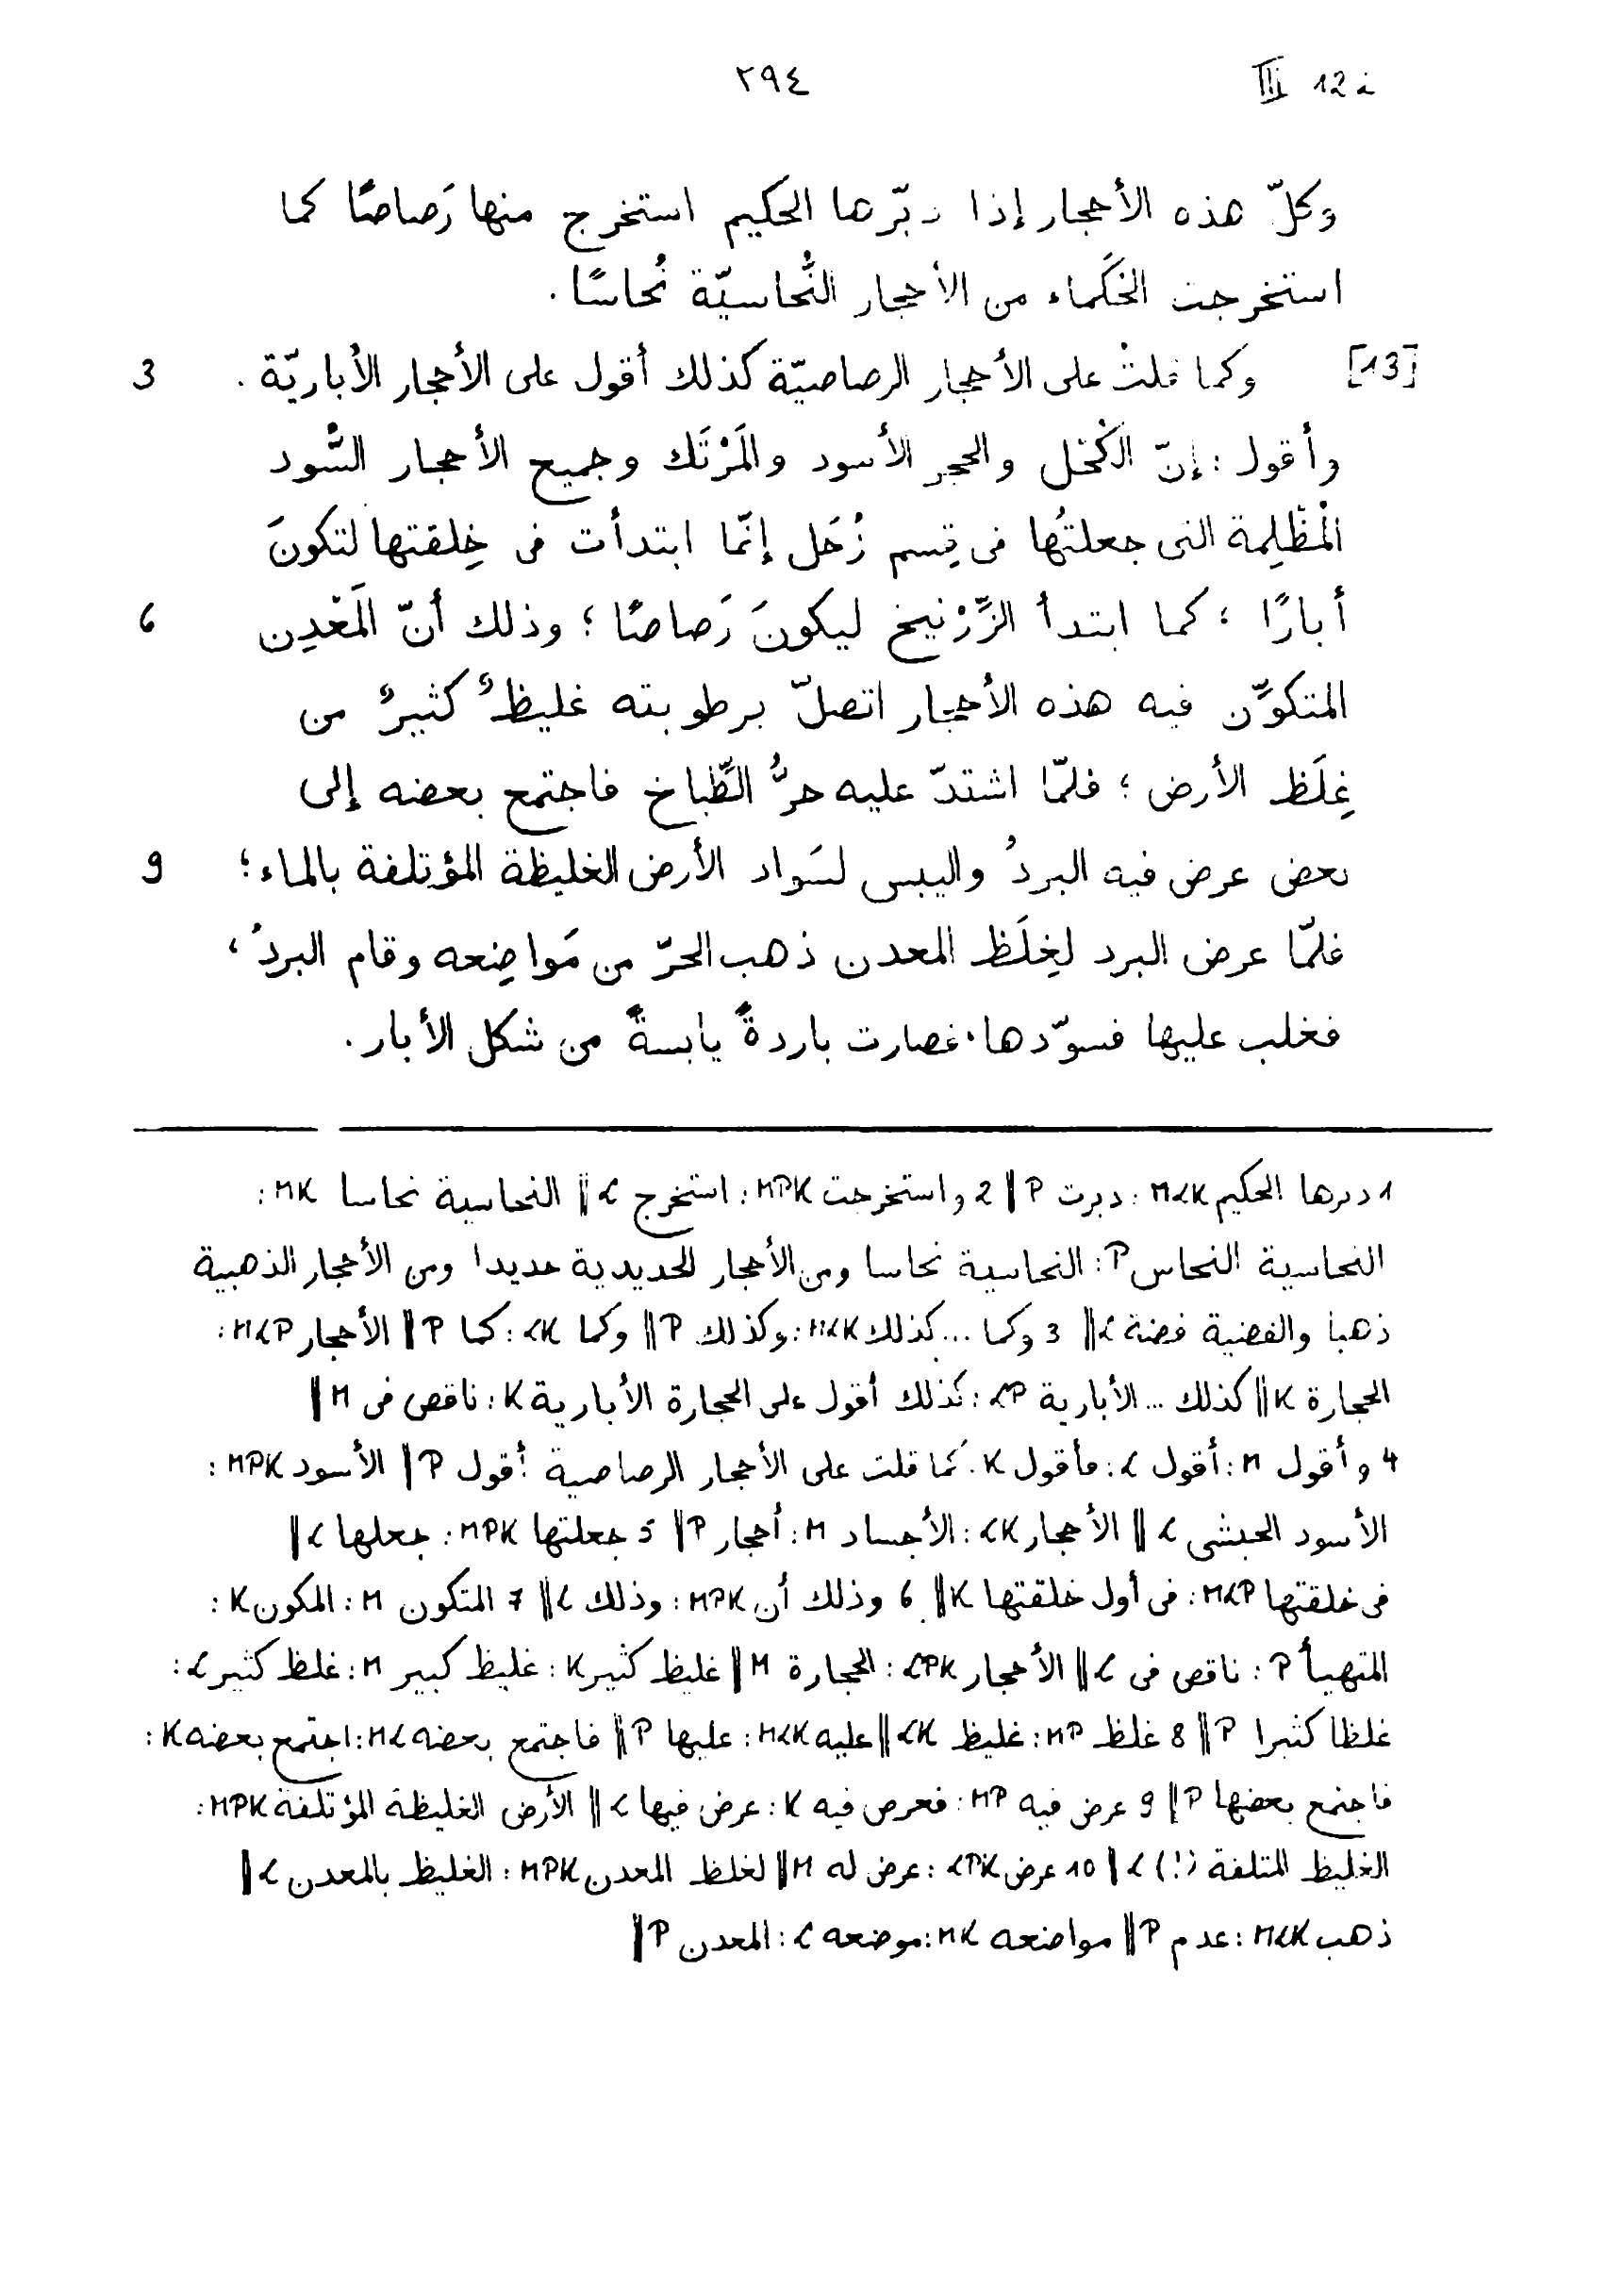 ٢٩٤ III 12 i
وكلّ هذه الأحجار إذا دبّرها الحكيم استخرج منها رَصاصًا كما
استخرجت الحُكَماء من الأحجار النُّحاسيّة نُحاسًا .
[13] وكما قلتُ على الأحجار الرصاصيّة كذلك أقول على الأحجار الأُباريّة . 3
وأقول : إنّ الكُحْل والحجر الأسود والمَرْتَك وجميع الأحجار السُّود
المُظْلِمة التى جعلتُها فى قِسم زُحَل إنّما ابتدأت فى خِلقتها لتكونَ
أبارًا ؛ كما ابتدأ الزِّرْنيخ ليكونَ رَصاصًا ؛ وذلك أنّ المَعْدِن 6
المتكوِّن فيه هذه الأحجار اتصلّ برطوبته غليظٌ كثيرٌ من
غِلَظ الأرض ؛ فلمّا اشتدّ عليه حرُّ الطِّباخ فاجتمع بعضه إلى
بعض عرض فيه البردُ واليبس لسَواد الأرض الغليظة المؤتلفة بالماء ؛ 9
فلمّا عرض البرد لغِلَظ المعدن ذهب الحرّ من مَواضِعه وقام البردُ ،
فغلب عليها فسوّدها ، فصارت باردةً يابسةً من شكل الأبار .
1 دبرها الحكيم MLK : دبرت P || 2 واستخرجت MPK : استخرج L || النحاسية نحاسا MK :
النحاسية النحاس P : النحاسية نحاسا ومن الأحجار الحديدية حديدا ومن الأحجار الذهبية
ذهبا والفضية فضة L || 3 وكما ... كذلك MLK : وكذلك P || وكما LK : كما P || الأحجار MLP :
الحجارة K || كذلك ... الأبارية LP : كذلك أقول على الحجارة الأبارية K : ناقص فى M ||
4 وأقول M : أقول L : فأقول K . كما قلت على الأحجار الرصاصية أقول P || الأسود MPK :
الأسود الحبشى L || الأحجار LK : الأجساد M : أحجار P || 5 جعلتها MPK : جعلها L ||
فى خلقتها MLP : فى أول خلقتها K || 6 وذلك أن MPK : وذلك L || 7 المتكون M : المكون K :
المتهيأ P : ناقص فى L || الأحجار LPK : الحجارة M || غليظ كثير K : غليظ كبير M : غلظ كثير L :
غلظا كثيرا P || 8 غلظ MP : غليظ LK || عليه MLK : عليها P || فاجتمع بعضه ML : اجتمع بعضه K :
فاجتمع بعضها P || 9 عرض فيه MP : فعرض فيه K : عرض فيها L || الأرض الغليظة المؤتلفة MPK :
الغليظ المتلفة (!) L || 10 عرض LPK : عرض له M || لغلظ المعدن MPK : الغليظ بالمعدن L ||
ذهب MLK : عدم P || مواضعه MK : موضعه L : المعدن P ||